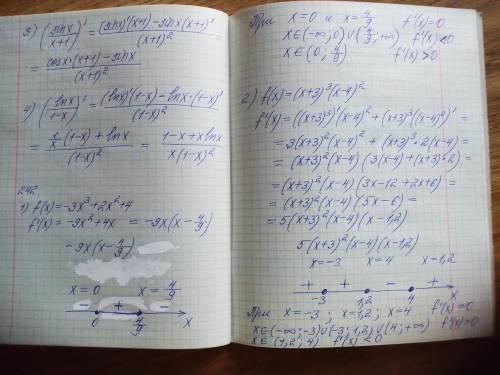 3) (sinx/(x+1))' = ((sinx)'(x+1) - sinx(x+1)')/(x+1)² =
= (cosx·(x+1) - sinx)/(x+1)²
4) (lnx/(1-x))' = ((lnx)'(1-x) - lnx·(1-x)')/(1-x)² =
= (1/x·(1-x) + lnx)/(1-x)² = (1-x+xlnx)/(x(1-x)²)
242.
1) f(x) = -3x³+2x²+4
f'(x) = -9x²+4x = -9x(x-4/9)
-9x(x-4/9)
x=0 x=4/9
- + -
0 4/9 x
При x=0 и x=4/9 f'(x)=0
x∈(-∞;0)∪(4/9;+∞) f'(x)<0
x∈(0; 4/9) f'(x)>0
2) f(x)=(x+3)³(x-4)²
f'(x)=((x+3)³)'(x-4)²+(x+3)³((x-4)²)' =
= 3(x+3)²(x-4)² + (x+3)³·2(x-4) =
= (x+3)²(x-4)(3(x-4)+(x+3)·2) =
= (x+3)²(x-4)(3x-12+2x+6) =
= (x+3)²(x-4)(5x-6) =
= 5(x+3)²(x-4)(x-1,2)
5(x+3)²(x-4)(x-1,2)
x=-3 x=4 x-1,2
+ + - +
-3 1,2 4 x
При x=-3; x=1,2; x=4 f'(x)=0
x∈(-∞;-3)∪(-3;1,2)∪(4;+∞) f'(x)>0
x∈(1,2; 4) f'(x)<0